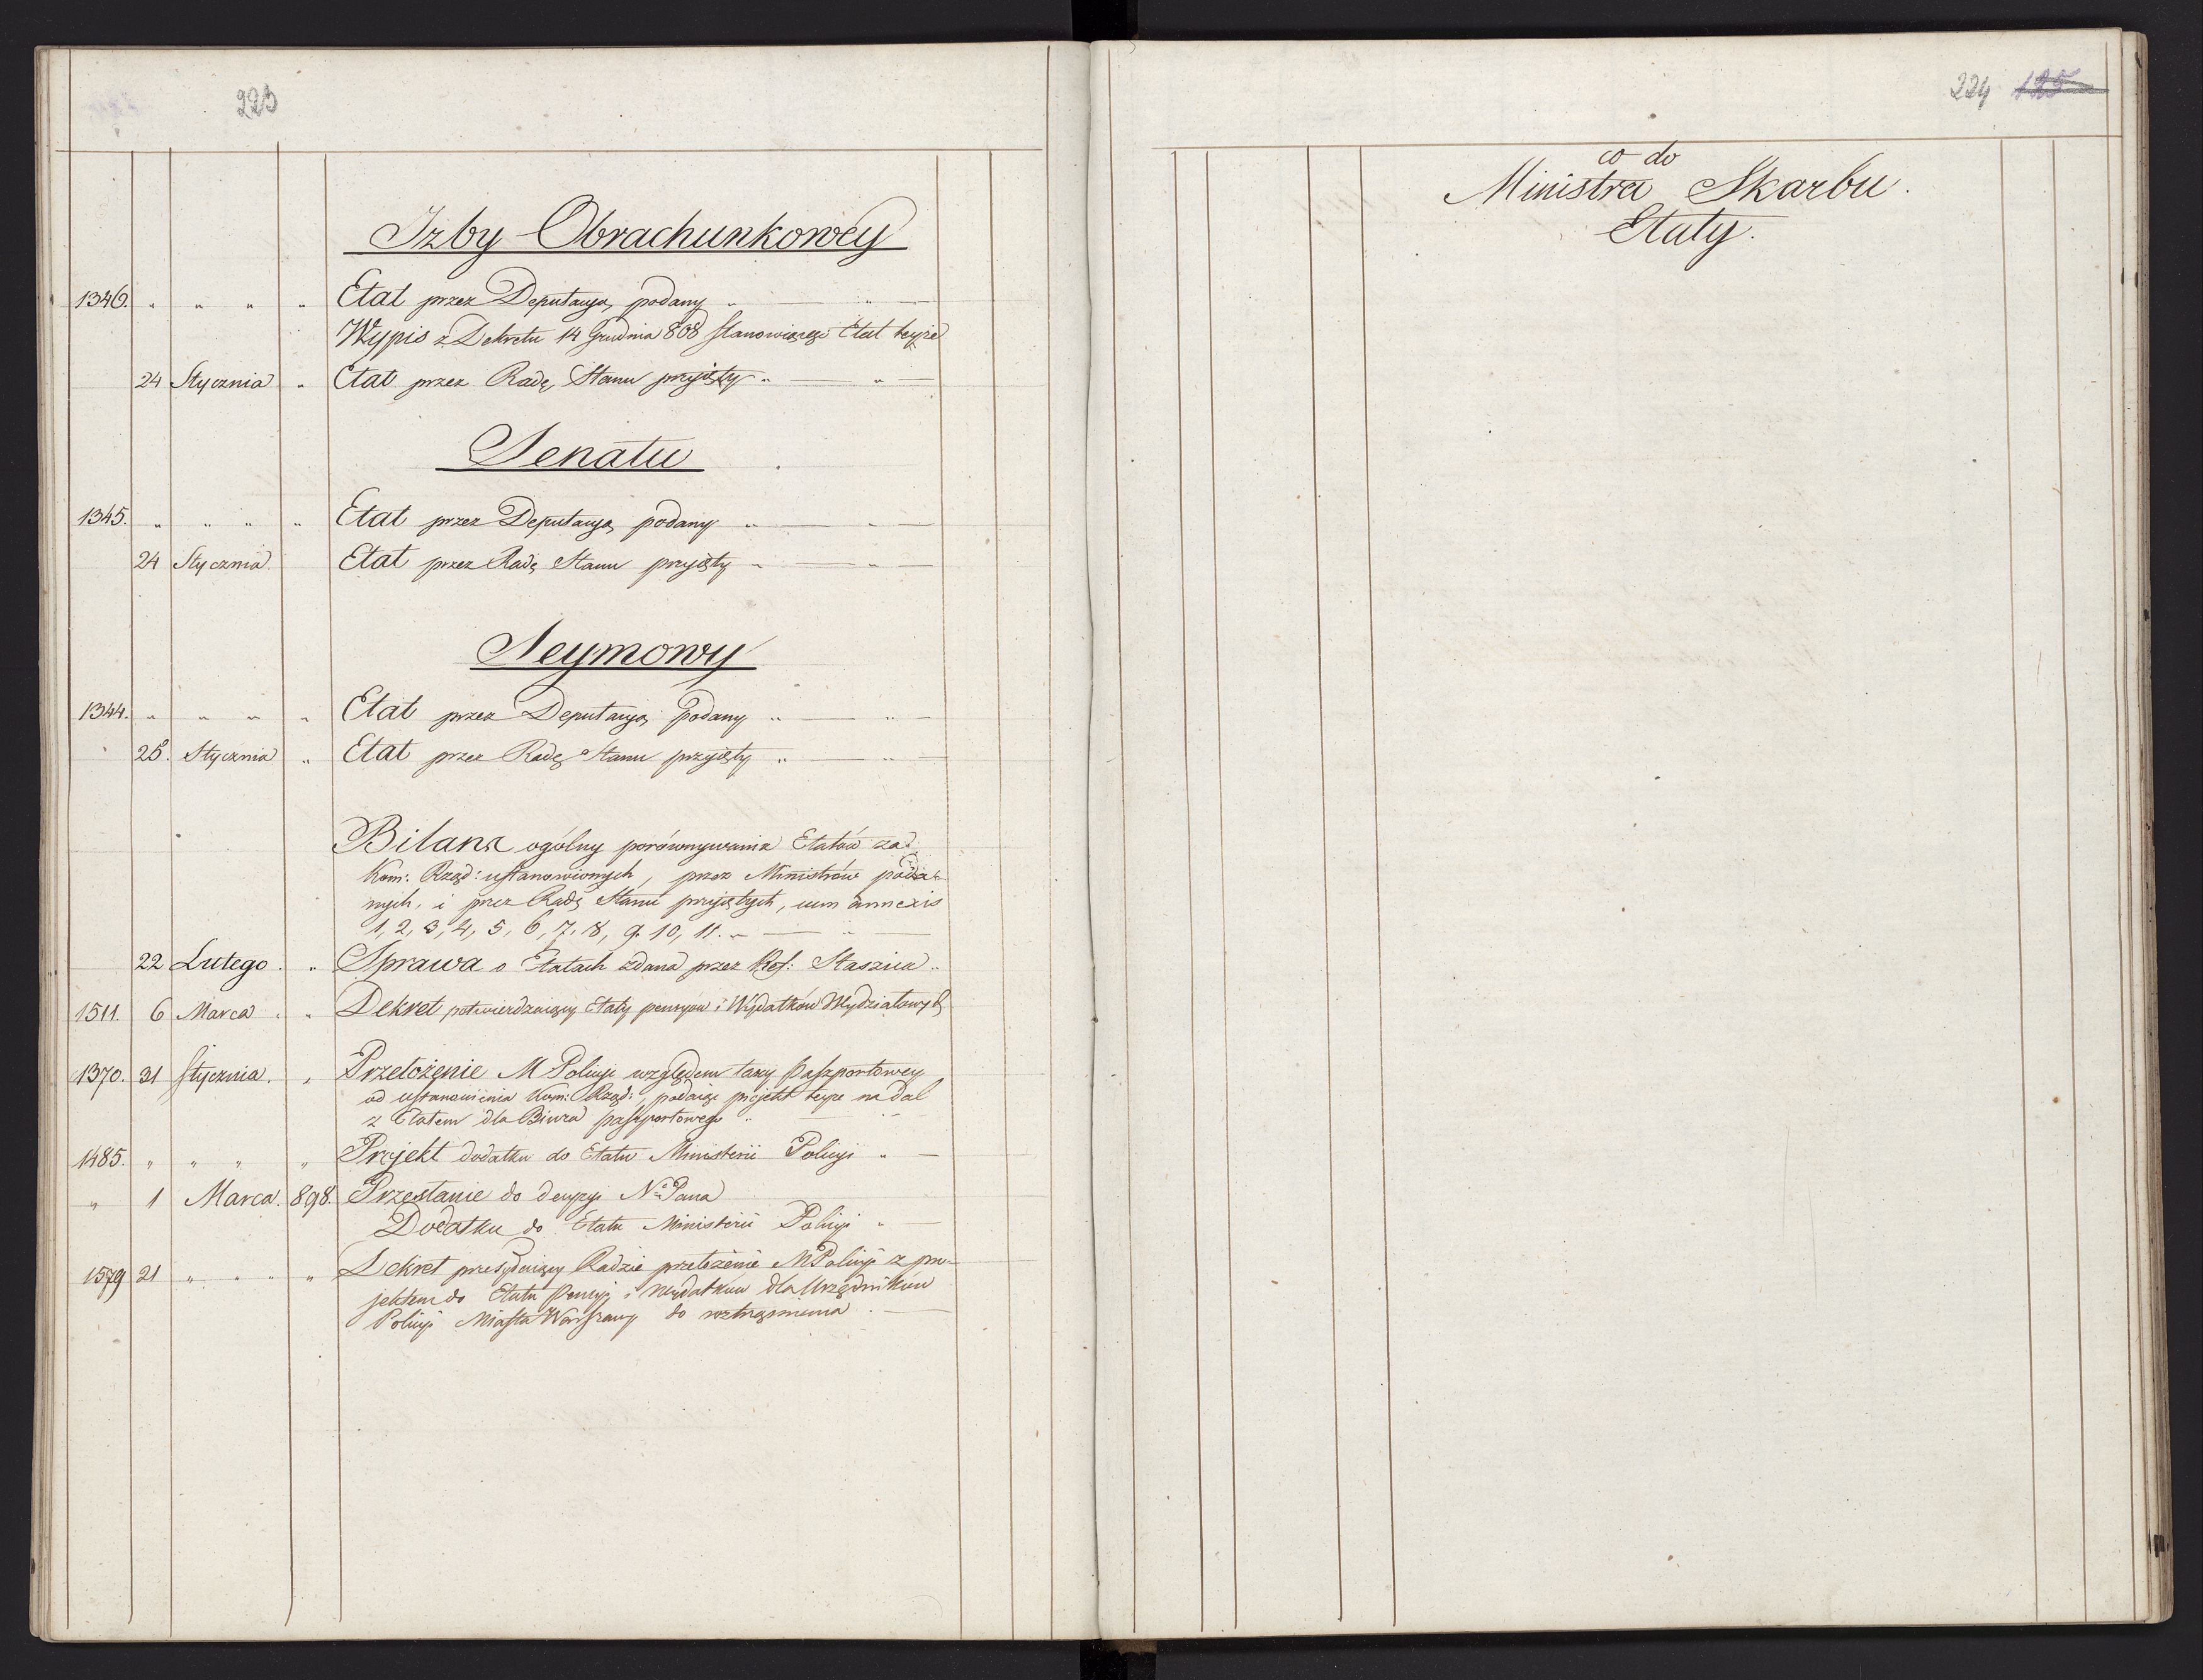 223
Izby Obrachunkowey
1346. " " " " Etat przez Deputacyą podany " — " —
Wypis z Dekretu 14 Grudnia 808 stanowiącego Etat teyże
24 Stycznia " Etat przez Radę Stanu przyięty " — " —
Senatu
1345. " " " " Etat przez Deputacyą podany " — " —
24 Stycznia Etat przez Radę Stanu przyięty " — " —
Seymowy
1344. " " " " Etat przez Deputacyą podany " — " —
25. Stycznia " Etat przez Radę Stanu przyięty " — " —
Bilans ogólny porównywania Etatów za
Kom: Rząd: ustanowionych, przez Ministrów poda-
nych, i przez Radę Stanu przyiętych, cum annexis
1, 2, 3, 4, 5, 6, 7, 8, 9. 10, 11. " — " —
22 Lutego. " Sprawa o Etatach zdana przez Ref: Staszica "
1511. 6 Marca " Dekret potwierdzaiący Etaty pensyów i Wydatków Wydziałowych
1370. 31 Stycznia. " Przełożenie M Policyi względem taxy Paszportowey
od ustanowienia Kom: Rząd:, podaiąc projekt teyże na dal
z Etatem dla Biura paszportowego " — "
1485. " " " " Projekt dodatku do Etatu Ministerii Policyi " —
" 1 Marca. 898. Przesłanie do decyzyi N° Pana
Dodatku do Etatu Ministerii Policyi " —
1579 21 " " " " Dekret przesyłaiący Radzie przełożenie M Policyi z pro-
jektem do Etatu Pensyi i Wydatków dla Urzędników
Policyi Miasta Warszawy do roztrząśnienia. —
224 125
co do
Ministra Skarbu.
Etaty.